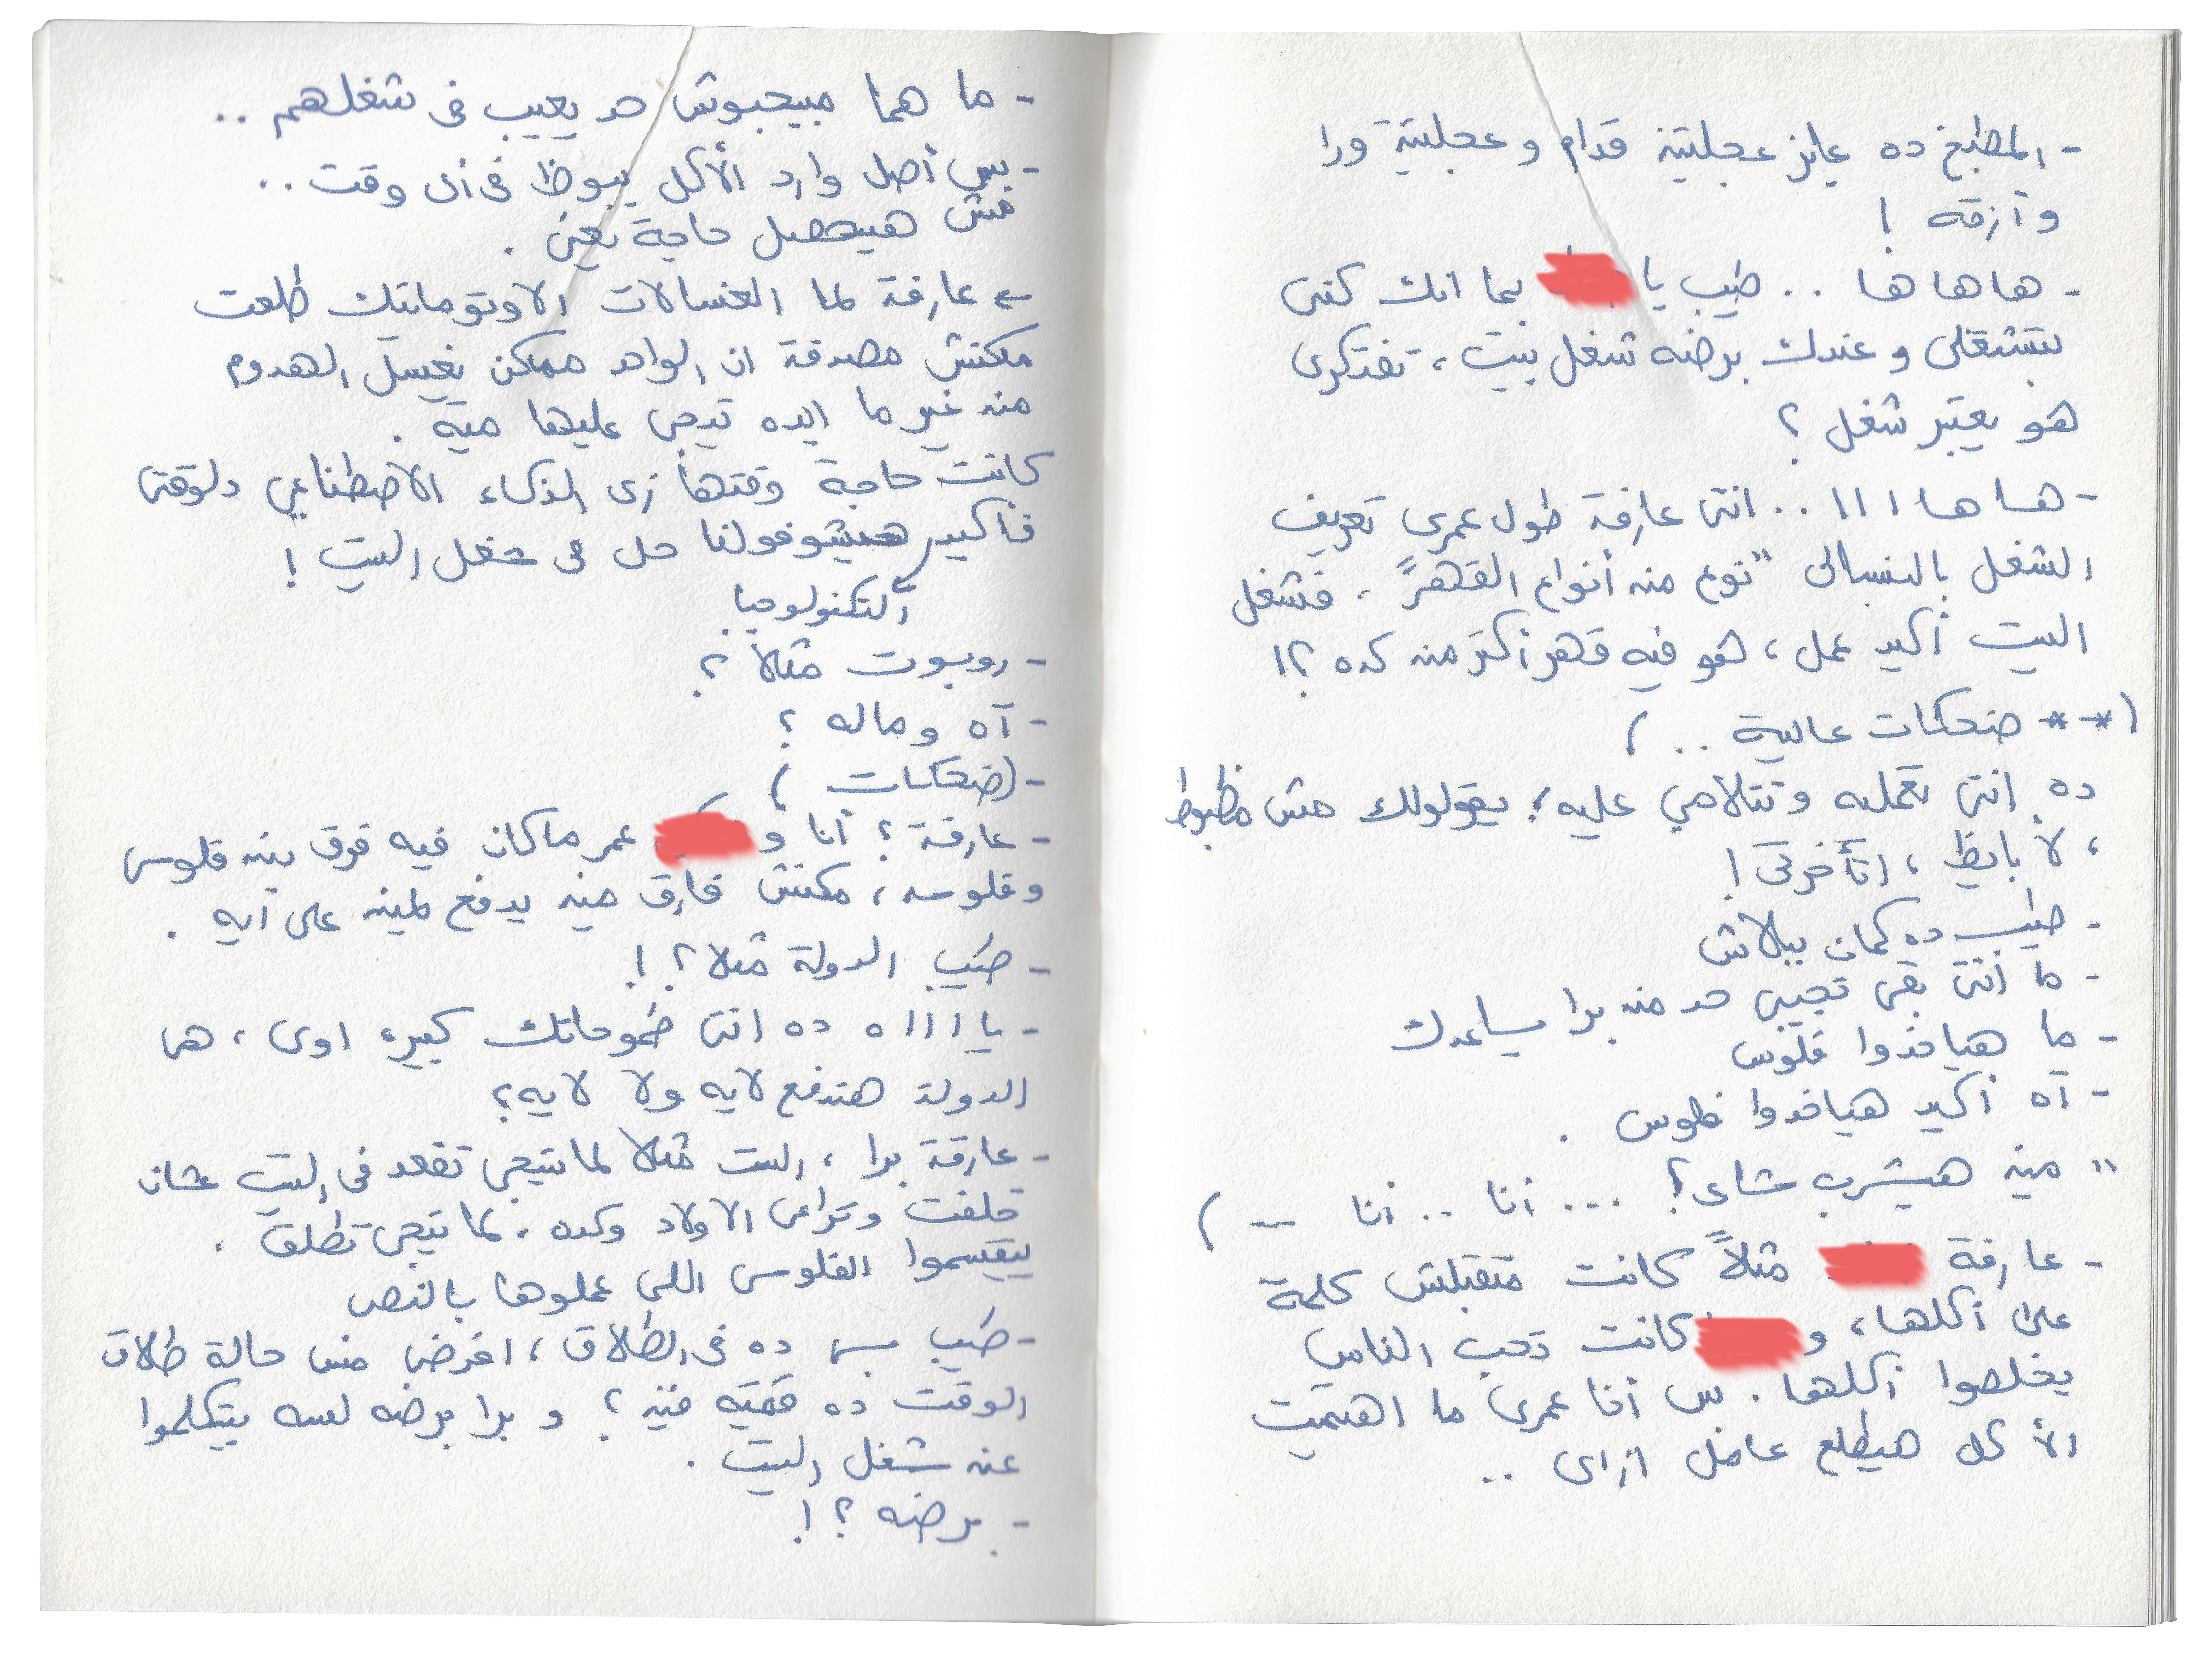 - المطبخ ده عايز عجلتين قدام و عجلتين ورا
وأزقه !
- هاهاها .. طيب يا بما انك كنتى
بتشتغلى و عندك برضه شغل بيت ، تفتكرى
هو يعتبر شغل ؟
- هاها ااا .. انتى عارفة طول عمرى تعريف
الشغل بالنسبالى "نوع من أنواع القهر" ، فشغل
البيت أكيد عمل ، هو فيه قهر أكتر من كده ؟!
(** ضحكات عالية .. )
ده انتى تعمليه وتتلامي عليه ؛ يقولولك مش مظبوط
، لا بايظ ، اتأخرتى !
- طيب ده كمان ببلاش
- ما انتى بقى تجيبى حد من برا يساعدك
- ما هياخدوا فلوس
- آه أكيد هياخدوا فلوس .
" مين هيشرب شاى ؟ ... أنا .. أنا -- )
- عارفة مثلاً كانت متقبلش كلمة
على أكلها ، و كانت تحب الناس
يخلصوا أكلها . بس أنا عمرى ما اهتميت
الأكل هيطلع عامل ازاى ..
- ما هما مبيحبوش حد يعيب فى شغلهم ..
- بس أصل وارد الأكل يبوظ فى أى وقت ..
مش هيحصل حاجة يعنى .
← عارفة لما الغسالات الاوتوماتيك طلعت
مكنتش مصدقة ان الواحد ممكن يغسل الهدوم
من غير ما ايده تيجى عليها ميه .
كانت حاجة وقتها زى الذكاء الاصطناعي دلوقتى
فأكيد هيشوفولنا حل فى شغل البيت !
التكنولوجيا
- روبوت مثلاً ؟
- آه وماله ؟
- (ضحكات )
- عارفة ؟ أنا و عمر ماكان فيه فرق بين فلوسى
وفلوسه ، مكنتش فارق مين يدفع لمين على أيه .
- طيب الدولة مثلا ؟ !
- يا اااا ه ده انتى طموحاتك كبيره اوى ، هى
الدولة هتدفع لايه ولا لايه ؟
- عارفة برا ، الست مثلا لما بتيجى تقعد فى البيت عشان
خلفت وتراعى الاولاد وكده . لما تيجى تطلق .
بيقسموا الفلوس اللى عملوها بالنص
- طيب بس ده فى الطلاق ، افرض مش حالة طلاق
الوقت ده قيمته فين ؟ و برا برضه لسه بيتكلموا
عن شغل البيت .
- برضه ؟ !